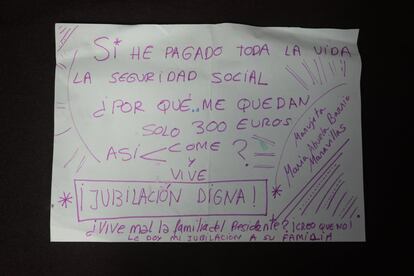 SI HE PAGADO TODA LA VIDA
LA SEGURIDAD SOCIAL
¿POR QUÉ ME QUEDAN
SOLO 300 EUROS
ASÍ < COME ?
Y
VIVE
* ¡JUBILACIÓN DIGNA! *
¿Vive mal la familia del Presidente? ¡CREO QUE NO!
LE DOY MI JUBILACIÓN A SU FAMILIA
Manujita
María Abuela Barrio
Maravillas